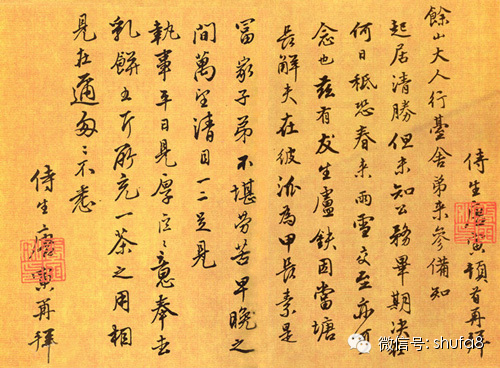 侍生唐寅頓首再拜
餘山大人行臺舍弟来參備知
起居清勝但未知公務畢期決在
何日秪恐春来雨雪交至亦可
念也茲有友生盧鉄因當塘
長解夫在彼派為甲長素是
冨家子弟不堪勞苦早晚之
間萬望清目一二足見
執事平日見厚區々之意奉去
乳餅五斤所充一茶之用相
見在邇匆々不悉
侍生唐寅再拜
微信号: shufa8